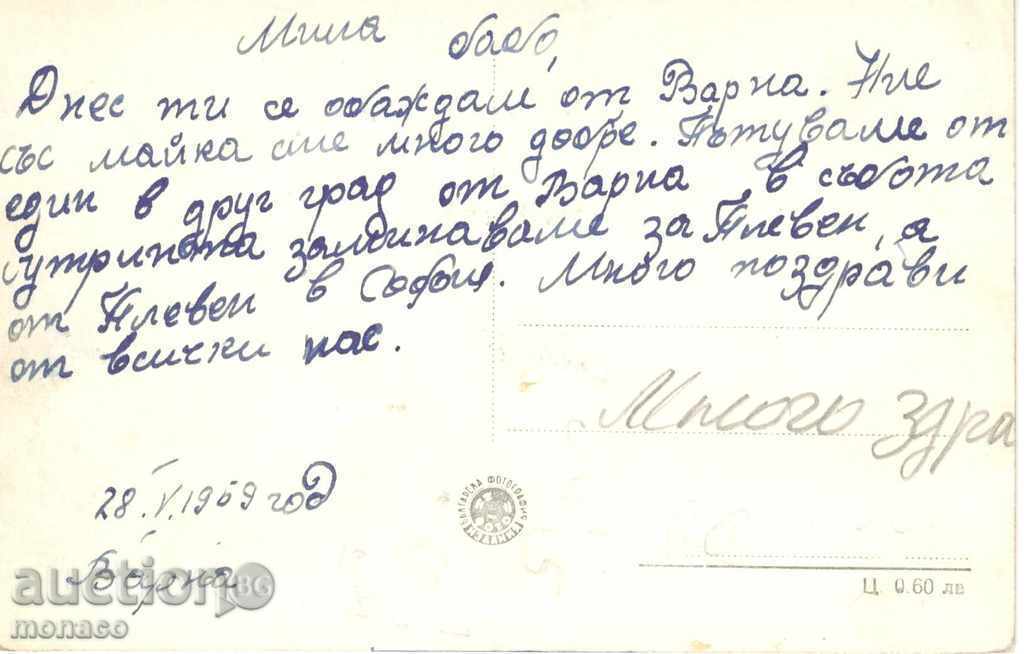 Мила бабо,
Днес ти се обаждам от Варна. Ние
със майка сме много добре. Пътуваме от
един в друг град от Варна, в събота
сутринта заминаваме за Плевен, а
от Плевен в София. Много поздрави
от всички нас.
Много здра
28.V.1969 год
Варна
БЪЛГАРСКА ФОТОГРАФИЯ
Ц. 0.60 лв
auction.BG
monaco